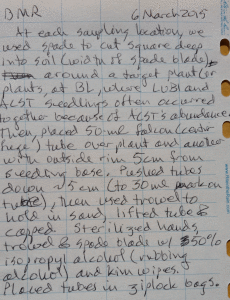 BMR 6 March 2015
At each sampling location, we
used spade to cut square deep
into soil (width of spade blade)
around a target plant (or
plants, at BL, where LUBI and
ACST seedlings often occurred
together because of ACST's abundance.
Then, placed 50-mL falcon (centri-
fuge) tube over plant and another
with outside rim 5cm from
seedling base. Pushed tubes
down ~5cm (to 30mL mark on
tube), then used trowel to
hold in sand, lifted tube &
capped. Sterilized hands,
trowel & spade blade w/ 50%
isopropyl alcohol (rubbing
alcohol) and kim wipes.
Placed tubes in ziplock bags.